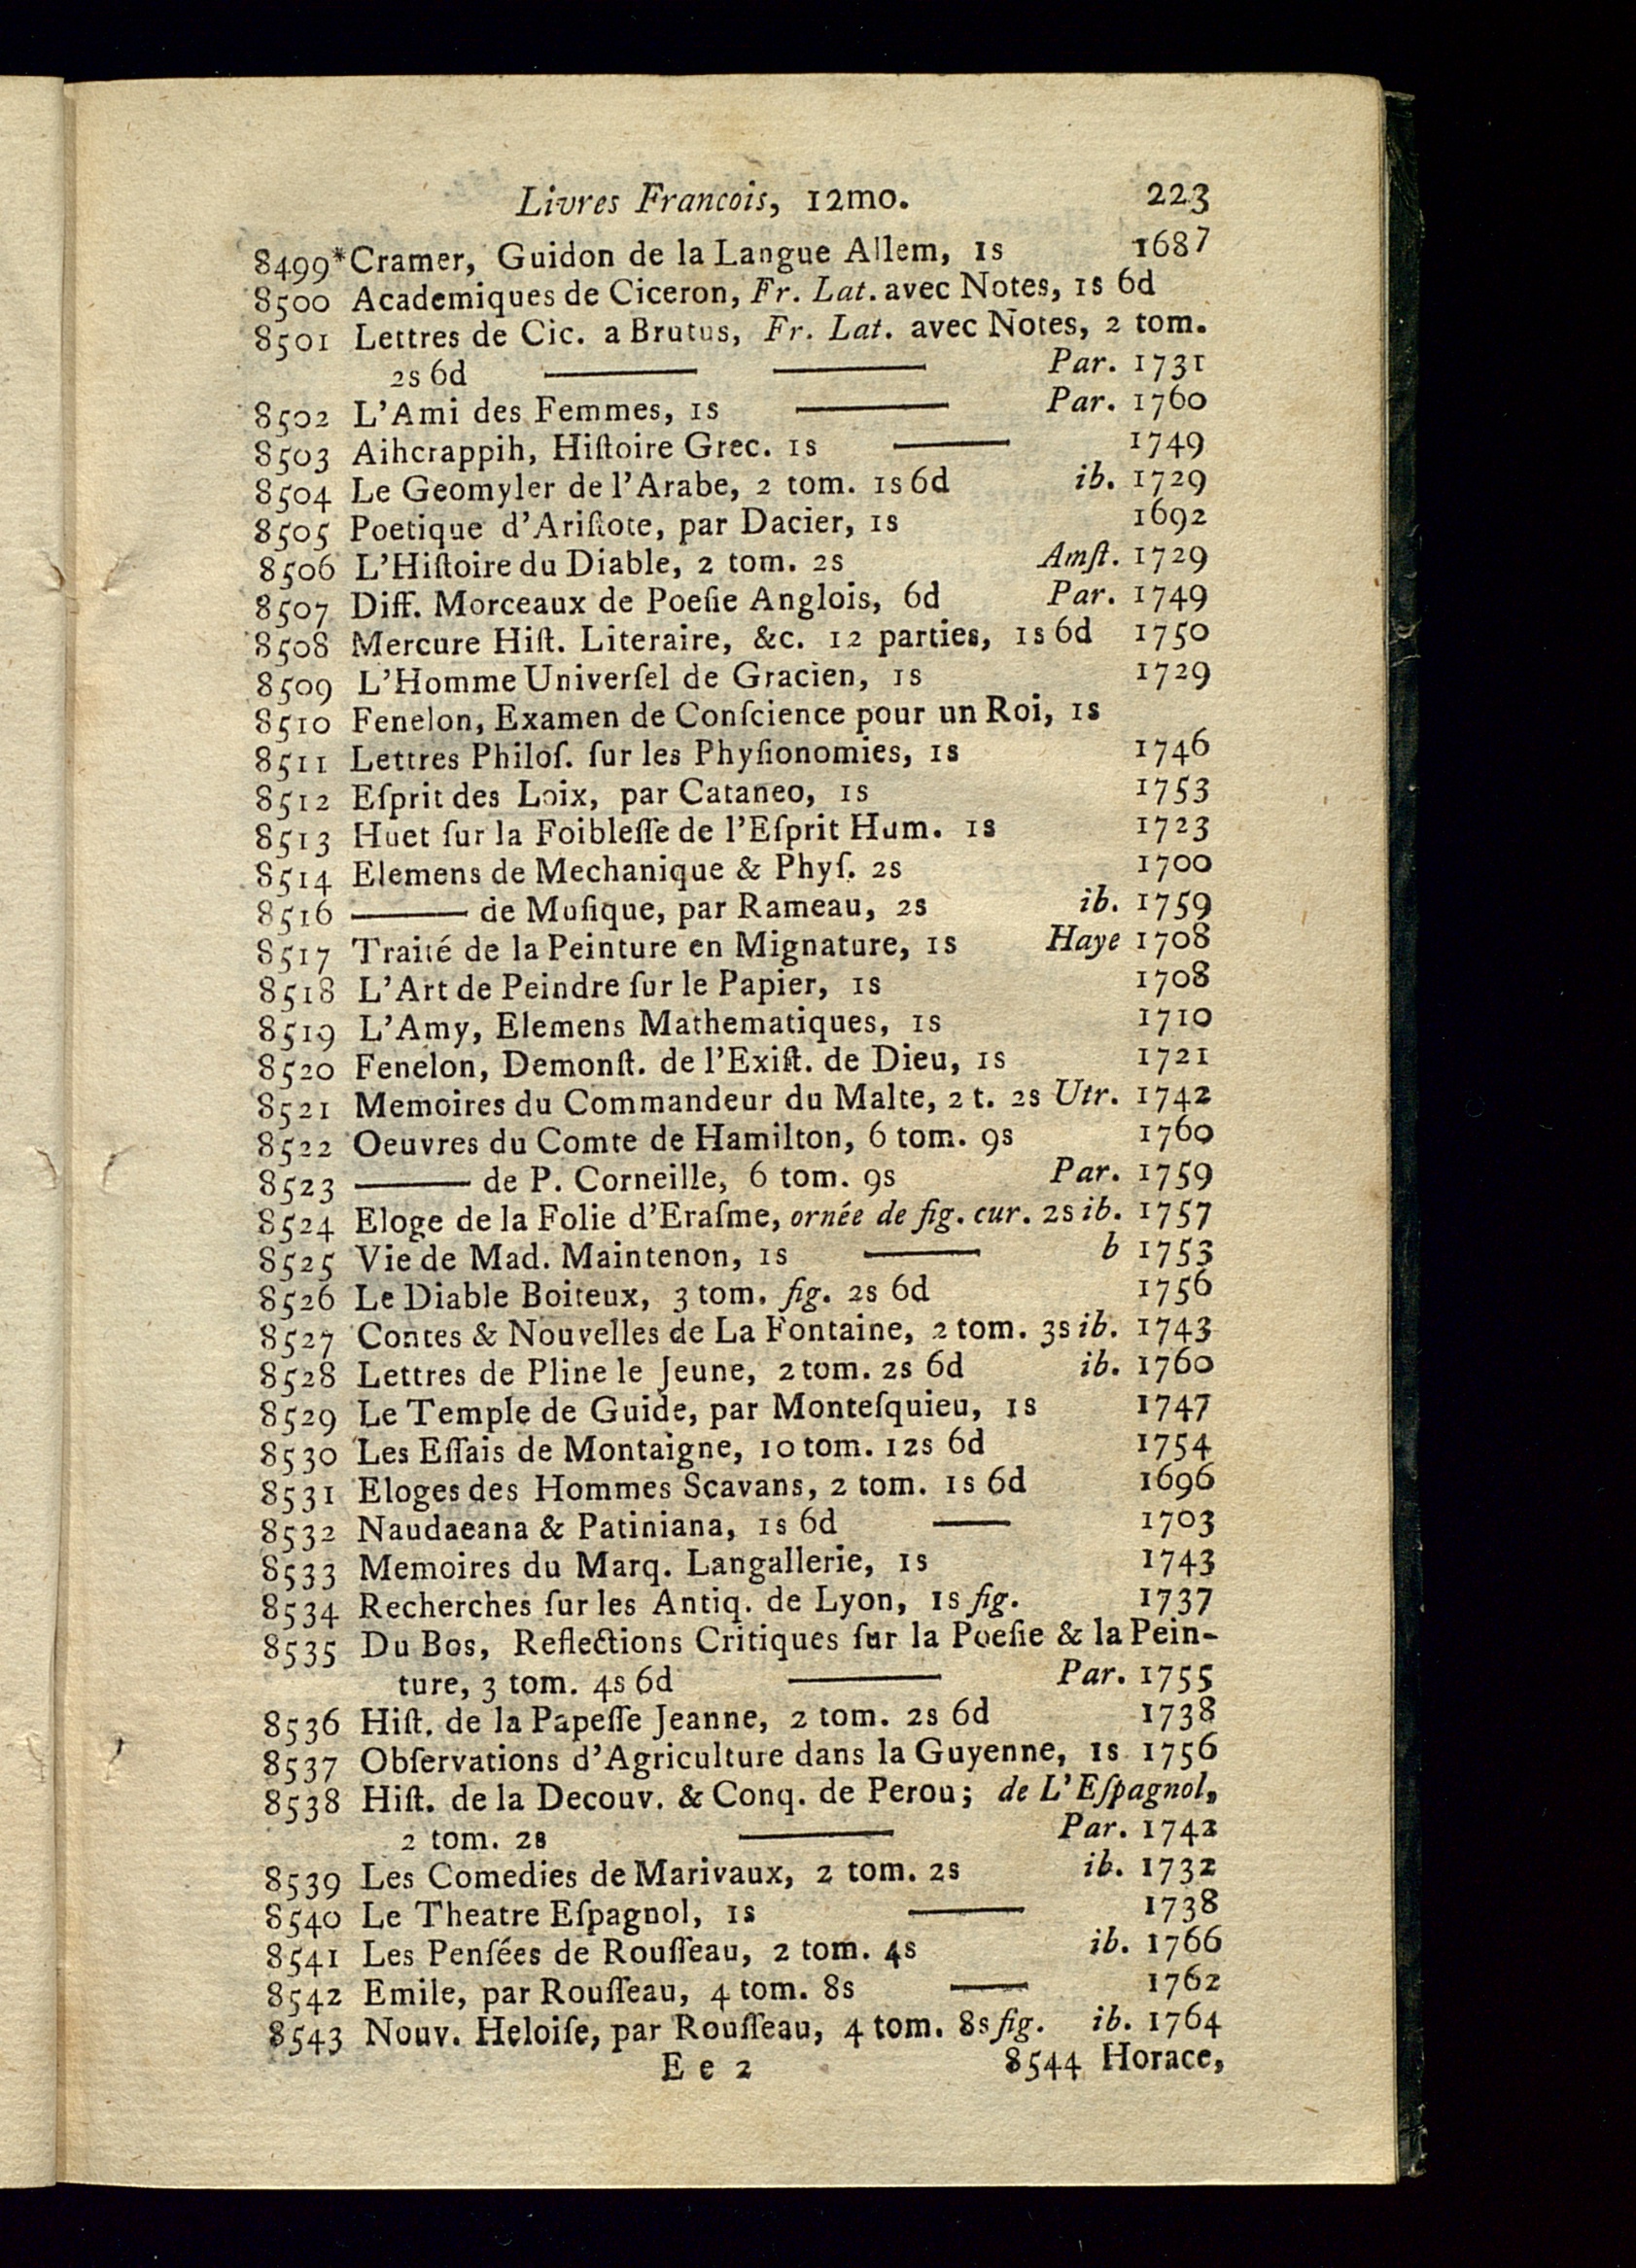 Livres Francois, 12mo. 223
8499*Cramer, Guidon de la Langue Allem, 1s 1687
8500 Academiques de Ciceron, Fr. Lat. avec Notes, 1s 6d
8501 Lettres de Cic. a Brutus, Fr. Lat. avec Notes, 2 tom.
2s 6d —— —— Par. 1731
8502 L'Ami des Femmes, 1s —— Par. 1760
8503 Aihcrappih, Hiſtoire Grec. 1s —— 1749
8504 Le Geomyler de l'Arabe, 2 tom. 1s 6d ib. 1729
8505 Poetique d'Ariſtote, par Dacier, 1s 1692
8506 L'Hiſtoire du Diable, 2 tom. 2s Amſt. 1729
8507 Diff. Morceaux de Poeſie Anglois, 6d Par. 1749
8508 Mercure Hiſt. Literaire, &c. 12 parties, 1s 6d 1750
8509 L'Homme Univerſel de Gracien, 1s 1729
8510 Fenelon, Examen de Conſcience pour un Roi, 1s
8511 Lettres Philoſ. ſur les Phyſionomies, 1s 1746
8512 Eſprit des Loix, par Cataneo, 1s 1753
8513 Huet ſur la Foibleſſe de l'Eſprit Hum. 1s 1723
8514 Elemens de Mechanique & Phyſ. 2s 1700
8516 —— de Muſique, par Rameau, 2s ib. 1759
8517 Traité de la Peinture en Mignature, 1s Haye 1708
8518 L'Art de Peindre ſur le Papier, 1s 1708
8519 L'Amy, Elemens Mathematiques, 1s 1710
8520 Fenelon, Demonſt. de l'Exiſt. de Dieu, 1s 1721
8521 Memoires du Commandeur du Malte, 2 t. 2s Utr. 1742
8522 Oeuvres du Comte de Hamilton, 6 tom. 9s 1760
8523 —— de P. Corneille, 6 tom. 9s Par. 1759
8524 Eloge de la Folie d'Eraſme, ornée de fig. cur. 2s ib. 1757
8525 Vie de Mad. Maintenon, 1s —— b 1753
8526 Le Diable Boiteux, 3 tom. fig. 2s 6d 1756
8527 Contes & Nouvelles de La Fontaine, 2 tom. 3s ib. 1743
8528 Lettres de Pline le Jeune, 2 tom. 2s 6d ib. 1760
8529 Le Temple de Guide, par Monteſquieu, 1s 1747
8530 Les Eſſais de Montaigne, 10 tom. 12s 6d 1754
8531 Eloges des Hommes Scavans, 2 tom. 1s 6d 1696
8532 Naudaeana & Patiniana, 1s 6d —— 1703
8533 Memoires du Marq. Langallerie, 1s 1743
8534 Recherches ſur les Antiq. de Lyon, 1s fig. 1737
8535 Du Bos, Reflections Critiques ſur la Poeſie & la Pein-
ture, 3 tom. 4s 6d —— Par. 1755
8536 Hiſt. de la Papeſſe Jeanne, 2 tom. 2s 6d 1738
8537 Obſervations d'Agriculture dans la Guyenne, 1s 1756
8538 Hiſt. de la Decouv. & Conq. de Perou; de L'Eſpagnol,
2 tom. 2s —— Par. 1742
8539 Les Comedies de Marivaux, 2 tom. 2s ib. 1732
8540 Le Theatre Eſpagnol, 1s —— 1738
8541 Les Penſées de Rouſſeau, 2 tom. 4s ib. 1766
8542 Emile, par Rouſſeau, 4 tom. 8s —— 1762
8543 Nouv. Heloiſe, par Rouſſeau, 4 tom. 8s fig. ib. 1764
E e 2 8544 Horace,